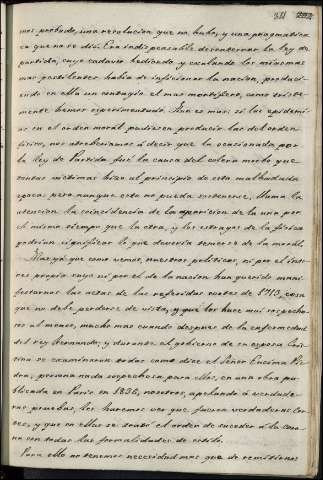 311
mos probado, una revolucion que no hubo, y una pragmatica
en que no se dió. Era indispensable desenterrar la ley de
partida, cuyo cadaver hediondo y exalando los miasmas
mas pestilentes habia de inficionar la nacion, producien
endo en ella un contagio el mas mortifero, como triste-
mente hemos esperimentado. Aun es mas: si las epidemi-
as en el orden moral pudiesen producir las del orden
fisico, nos atreberiamos á decir que la ocasionada por
la ley de Partida fué la causa del colera morbo que
tantas victimas hizo al principio de esta malhadada
epoca; pero aunque esto no pueda sostenerse, llama la
atencion la coincidencia de la aparicion de la una por
el mismo tiempo que la otra, y los estragos de la fisica
podrian significar lo que deveria temerse de la moral.
Mas yá que como vemos, nuestros politicos, ni por el inte-
res propio suyo ni por el de la nacion han querido mani-
festarnos las actas de las referidas cortes de 1713, cosa
que no debe perderse de vista, y que los hace mui sospecho-
sos al menos, mucho mas cuando despues de la enfermedad
del rey Fernando, y durante el gobierno de su esposa Cris-
tina se examinaron todas como dice el Señor Encima Pie-
dra, persona nada sospechosa para ellos, en una obra pu-
blicada en Paris en 1836, nosotros, apelando á verdade-
ras pruebas, les haremos ver que fueron verdaderas Cor-
tes, y que en ellas se varió el orden de suceder á la coro-
na con todas las formalidades de estilo.
Para ello no tenemos necesidad mas que de remitirnos